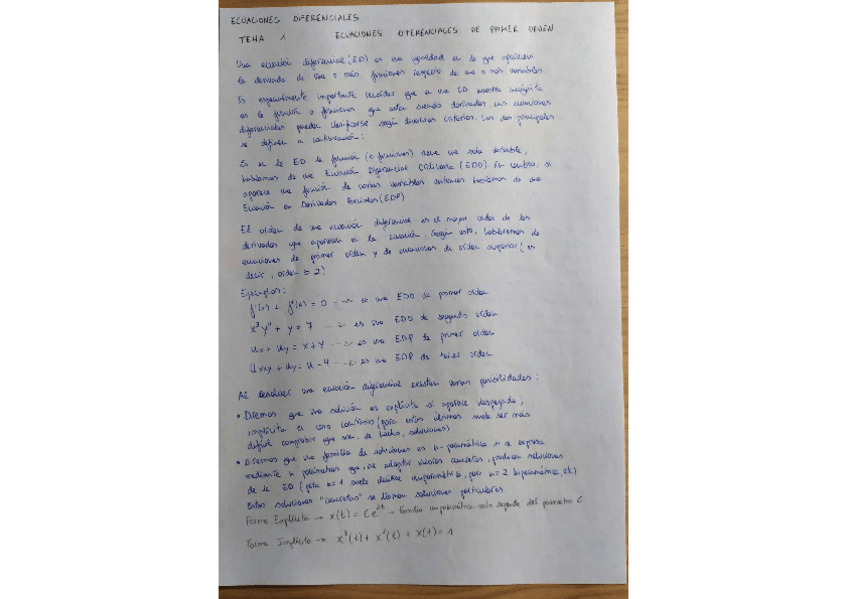 ECUACIONES DIFERENCIALES
TEMA 1 ECUACIONES DIFERENCIALES DE PRIMER ORDEN
Una ecuación diferencial (ED) es una igualdad en la que aparecen
la derivada de una o más funciones respecto de una o más variables
Es especialmente importante recordar que en una ED nuestra incógnita
es la función o funciones que están siendo derivadas. Las ecuaciones
diferenciales pueden clasificarse según diversos criterios. Los dos principales
se definen a continuación:
Si en la ED la función (o funciones) tiene una sola variable,
hablamos de una Ecuación Diferencial Ordinaria (EDO). En cambio, si
aparece una función de varias variables entonces hablamos de una
Ecuación en Derivadas Parciales (EDP)
El orden de una ecuación diferencial es el mayor orden de las
derivadas que aparecen en la ecuación. Según esto, hablaremos de
ecuaciones de primer orden y de ecuaciones de orden superior (es
decir, orden ≥ 2)
Ejemplos:
f'(x) + f(x) = 0 → es una EDO de primer orden
x³y'' + y = 7 → es una EDO de segundo orden
ux + uy = x + y → es una EDP de primer orden
uxxy + uy = u - 4 → es una EDP de tercer orden
Al resolver una ecuación diferencial existen varias posibilidades:
• Diremos que una solución es explícita si aparece despejada;
implícita en caso contrario (para estas últimas suele ser más
difícil comprobar que son, de hecho, soluciones)
• Diremos que una familia de soluciones es n-paramétrica si se expresa
mediante n parámetros que, al adoptar valores concretos, producen soluciones
de la ED (para n=1 suele decirse uniparamétrica, para n=2 biparamétrica, etc)
Estas soluciones "concretas" se llaman soluciones particulares
Forma Explícita → x(t) = Ce²ᵗ → Familia uniparamétrica, solo depende del parámetro C
Forma Implícita → x³(t) + x²(t) + x(t) = 1